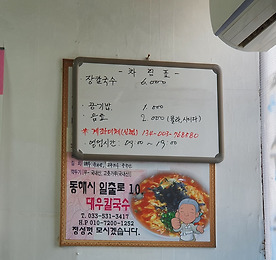 - 차 림 표 -
장칼국수 6.000
공기밥 1.000
음료 2.000 (콜라,사이다)
* 계좌이체(신협) 134-003-768880
영업시간 : 09:00 ~ 19:00
동해시 일출로 10
대우칼국수
T. 033-531-3417
H.P 010-7200-1252
정성껏 모시겠습니다.